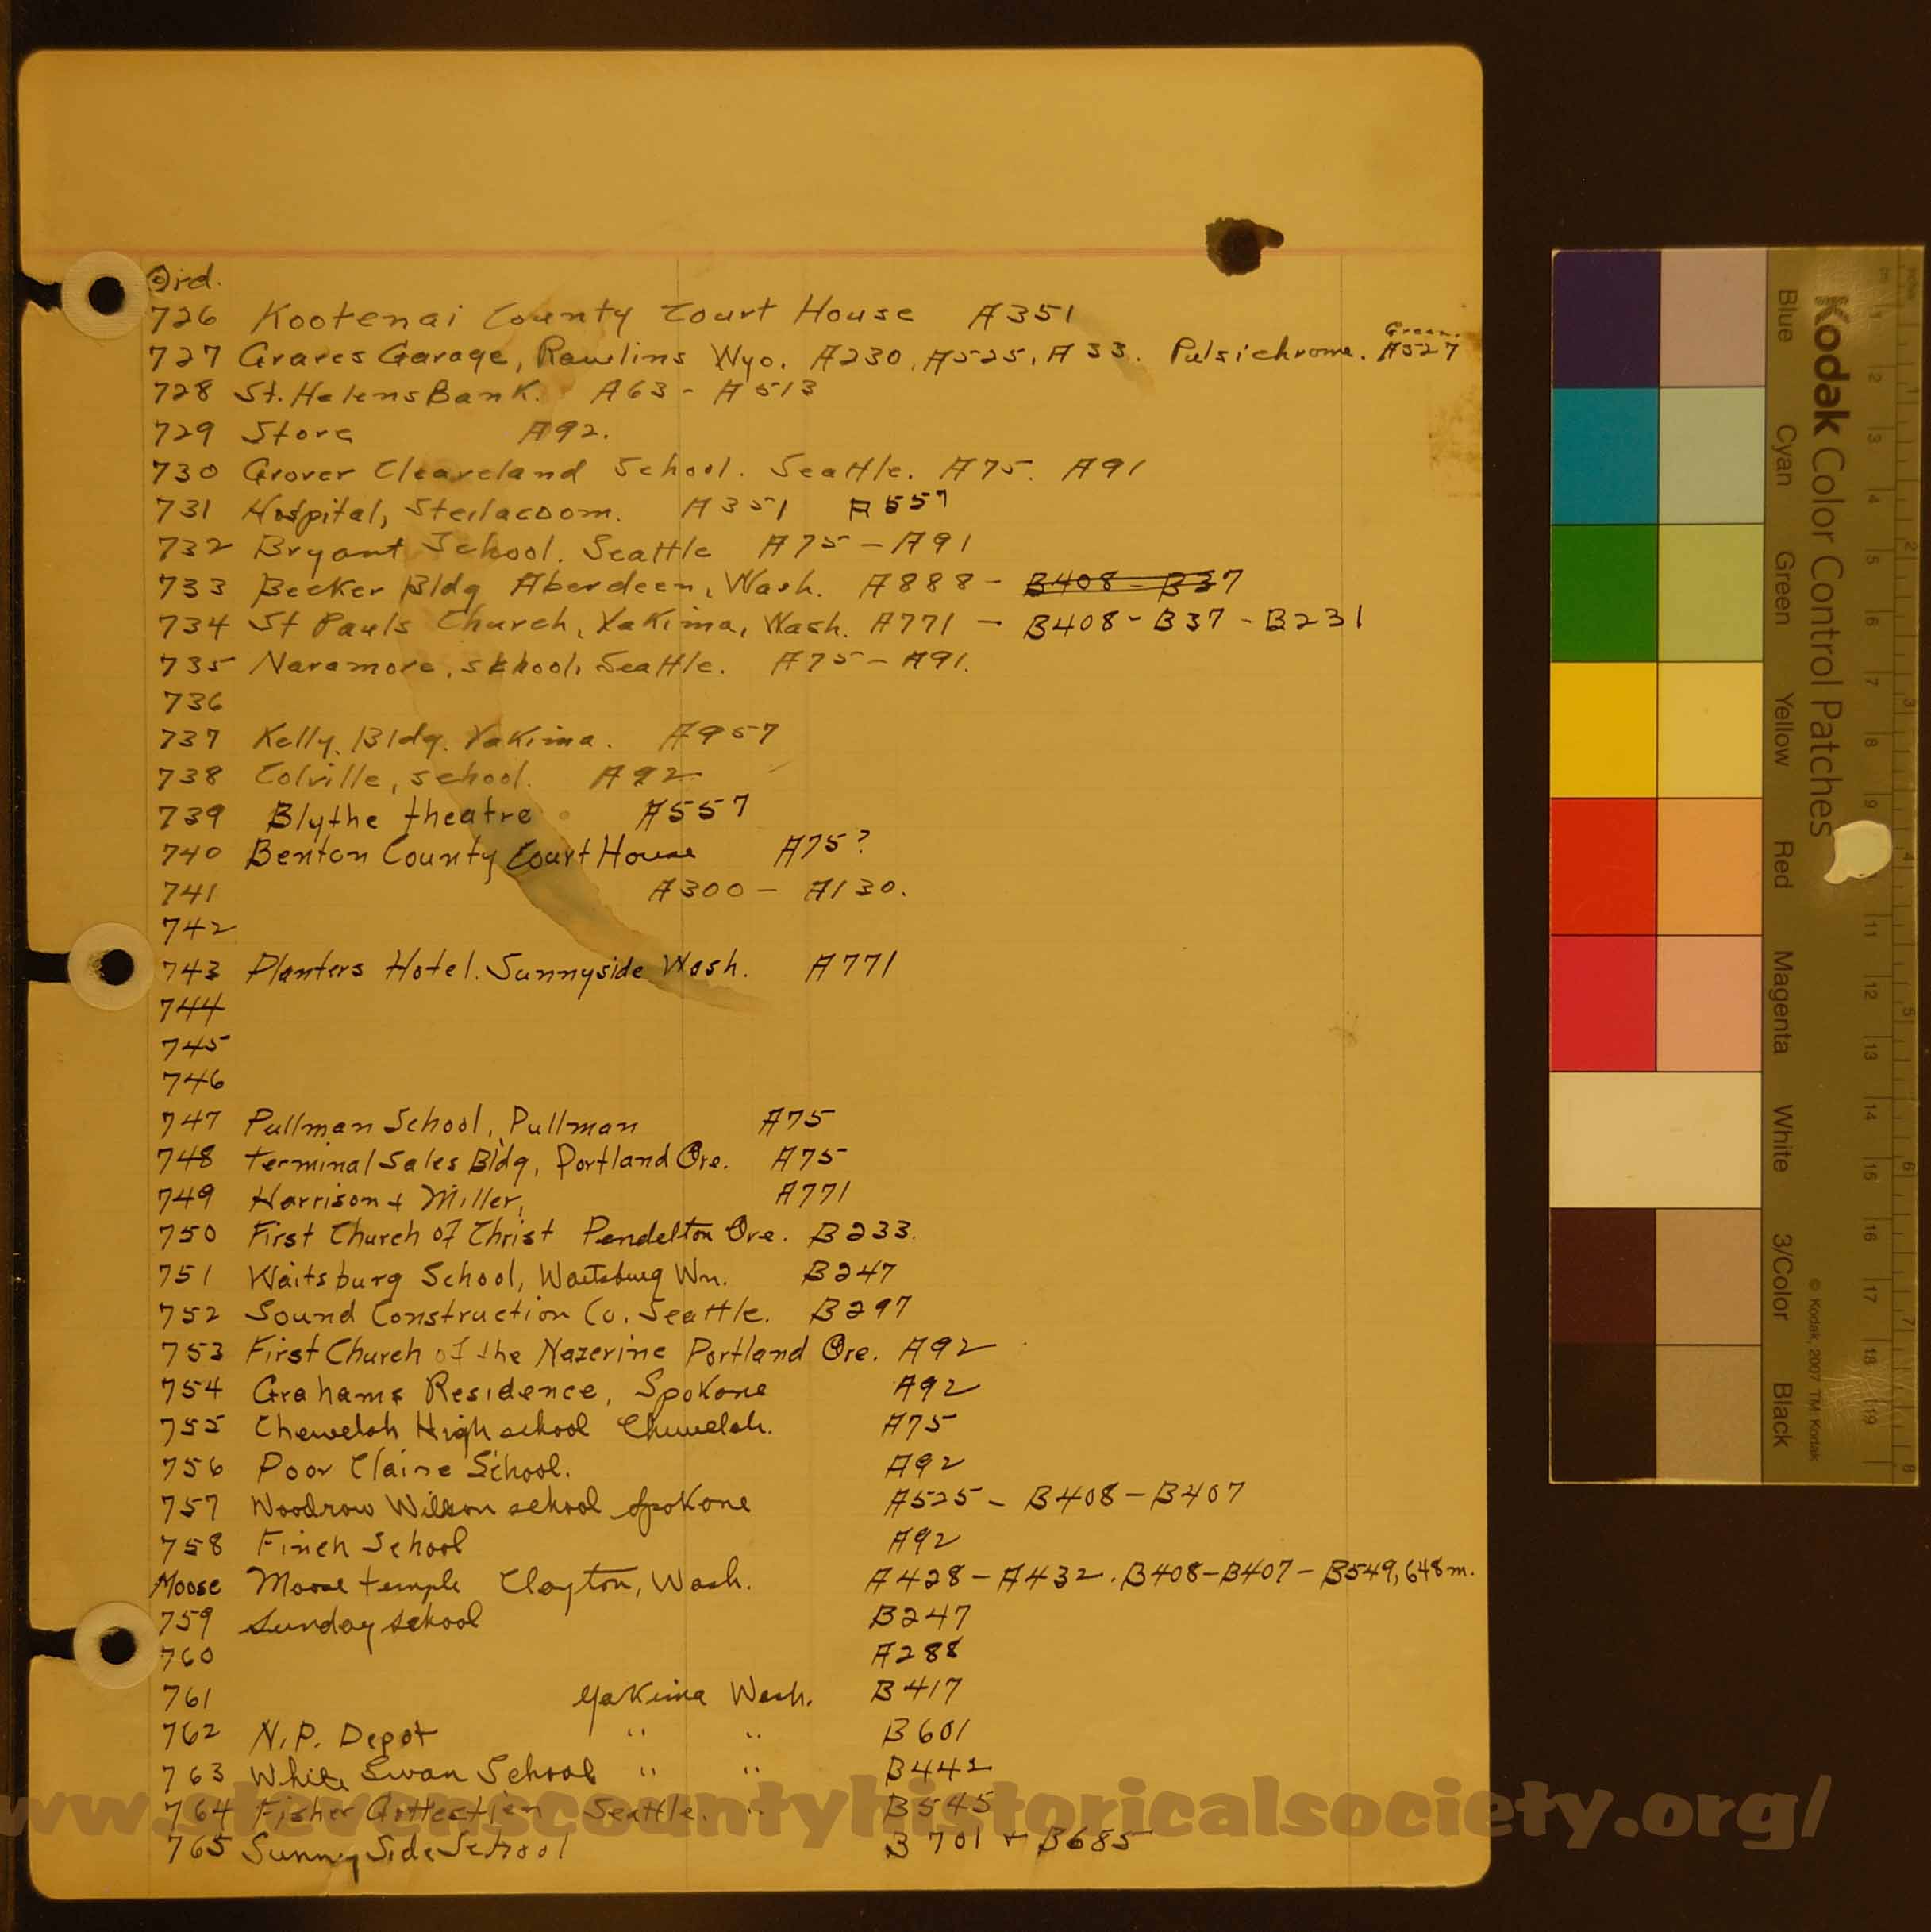 Ord.
726 Kootenai County Court House A351
Green.
727 Graves Garage, Rawlins Wyo. A230, A525, A33. Pulsichrome. A527
728 St. Helens Bank. A63 - A513
729 Store A92.
730 Grover Cleaveland School. Seattle. A75. A91
731 Hospital, Steilacoom. A351 A557
732 Bryant School. Seattle A75 - A91
733 Becker Bldg Aberdeen, Wash. A888 - B408 - B37
734 St Pauls Church, Yakima, Wash. A771 - B408 - B37 - B231
735 Naramore, skhool, Seattle. A75 - A91.
736
737 Kelly. Bldg. Yakima. A957
738 Colville, school. A92
739 Blythe theatre A557
740 Benton County Court House A75?
741 A300 - A130.
742
743 Planters Hotel. Sunnyside Wash. A771
744
745
746
747 Pullman School, Pullman A75
748 Terminal Sales Bldg, Portland Ore. A75
749 Harrison + Miller, A771
750 First Church of Christ Pendelton Ore. B233.
751 Waitsburg School, Waitsburg Wn. B247
752 Sound Construction Co. Seattle. B297
753 First Church of the Nazerine Portland Ore. A92
754 Grahams Residence, Spokane A92
755 Chewelah High school Chewelah. A75
756 Poor Claire School. A92
757 Woodrow Wilson school Spokane A525 - B408 - B407
758 Finch School A92
Moose Moose temple Clayton, Wash. A428 - A432. B408 - B407 - B549, 648m.
759 Sunday school B247
760 A288
761 Yakima Wash. B417
762 N.P. Depot " " B601
763 White Swan School " " B442
764 Fisher Seattle. " B545
765 Sunny Side School B701 + B685
www.stevenscountyhistoricalsociety.org/
Kodak Color Control Patches
Blue Cyan Green Yellow Red Magenta White 3/Color Black
© Kodak, 2007 TM: Kodak
inches
1 2 3 4 5 6 7 8
1 2 3 4 5 6 7 8 9 11 12 13 14 15 16 17 18 19